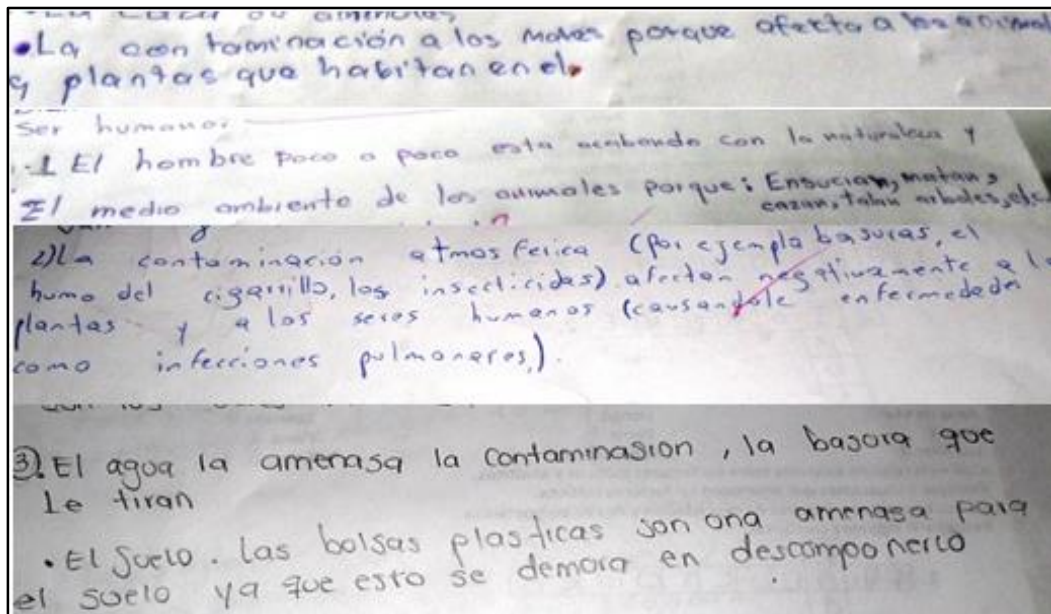 •La contaminación a los mares porque afecta a los animal
y plantas que habitan en el.
Ser humano:
1 El hombre poco a poco esta acabando con la naturaleza y
El medio ambiente de los animales porque: Ensucian, matan,
cazan, talan arboles, etc.
2)La contaminación atmosferica (por ejemplo basuras, el
humo del cigarrillo, los insecticidas) afectan negativamente a la
plantas y a los seres humanos (causandole enfermedades
como infecciones pulmonares,).
3). El agua la amenasa la contaminasion, la basora que
Le tiran
• El suelo. las bolsas plasticas son ona amenasa para
el suelo ya que esto se demora en descomponerlo